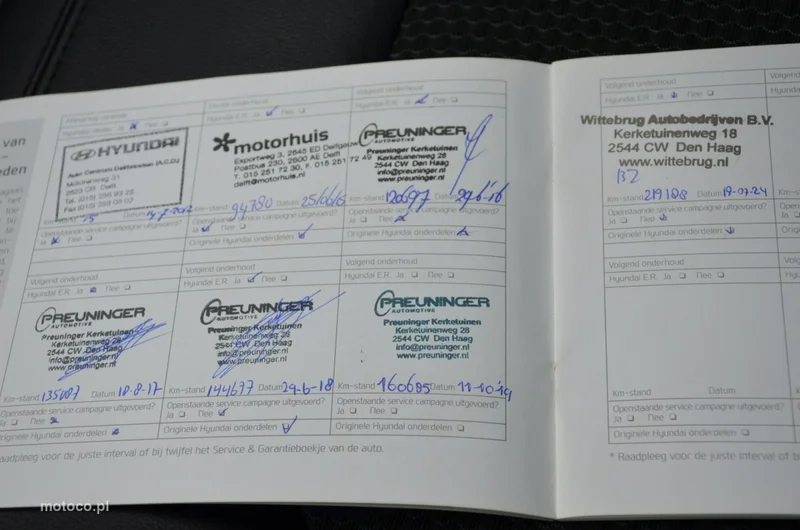 van
–
eden
Volgend onderhoud
Hyundai E.R. Ja Nee
HYUNDAI
Auto Centrum
Motorenweg 31
2623 CR Delft
Km-stand Datum
Openstaande service campagne uitgevoerd?
Ja Nee
Hyundai E.R. Ja Nee
motorhuis
Exportweg 3, 2645 ED Delfgauw
Postbus 230, 2600 AE Delft
T. 015 251 72 30, F. 015 251 72 49
delft@motorhuis.nl
Km-stand 94780 Datum 25/06/15
Openstaande service campagne uitgevoerd?
Ja Nee
Originele Hyundai onderdelen
Volgend onderhoud
Hyundai E.R. Ja Nee
PREUNINGER
AUTOMOTIVE
Preuninger Kerketuinen
Kerketuinenweg 28
2544 CW Den Haag
info@preuninger.nl
www.preuninger.nl
Km-stand 120697 Datum 29-6-16
Openstaande service campagne uitgevoerd?
Ja Nee
Originele Hyundai onderdelen
Volgend onderhoud
Hyundai E.R. Ja Nee
PREUNINGER
AUTOMOTIVE
Preuninger Kerketuinen
Kerketuinenweg 28
2544 CW Den Haag
info@preuninger.nl
www.preuninger.nl
Km-stand 135087 Datum 18-8-17
Openstaande service campagne uitgevoerd?
Ja Nee
Originele Hyundai onderdelen
Volgend onderhoud
Hyundai E.R. Ja Nee
PREUNINGER
AUTOMOTIVE
Preuninger Kerketuinen
Kerketuinenweg 28
2544 CW Den Haag
info@preuninger.nl
www.preuninger.nl
Km-stand 144697 Datum 29-6-18
Openstaande service campagne uitgevoerd?
Ja Nee
Originele Hyundai onderdelen
Volgend onderhoud
Hyundai E.R. Ja Nee
PREUNINGER
AUTOMOTIVE
Preuninger Kerketuinen
Kerketuinenweg 28
2544 CW Den Haag
info@preuninger.nl
www.preuninger.nl
Km-stand 160685 Datum 11-10-19
Openstaande service campagne uitgevoerd?
Ja Nee
Originele Hyundai onderdelen
Raadpleeg voor de juiste interval of bij twijfel het Service & Garantieboekje van de auto.
Volgend onderhoud
Hyundai E.R. Ja Nee
Wittebrug Autobedrijven B.V.
Kerketuinenweg 18
2544 CW Den Haag
www.wittebrug.nl
BZ
Km-stand 219188 Datum 19-07-24
Openstaande service campagne uitgevoerd?
Ja Nee
Originele Hyundai onderdelen
Volgend onderhoud
Hyundai E.R. Ja Nee
Km-stand Datum
Openstaande service campagne uitgevoerd?
Ja Nee
Originele Hyundai onderdelen
* Raadpleeg voor de juiste interval of b
motoco.pl